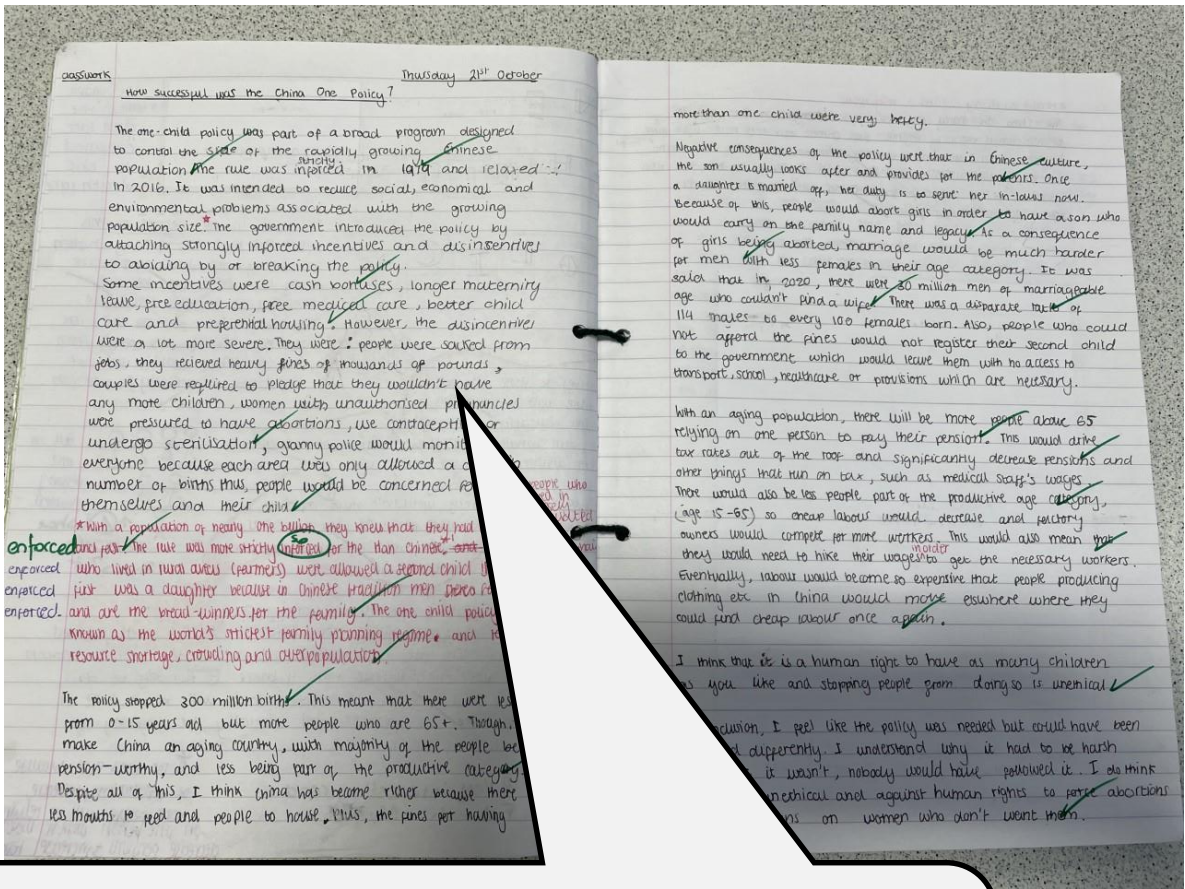 classwork
Thursday 21st October
How successful was the China One Policy?
The one-child policy was part of a broad program designed
to control the size of the rapidly growing Chinese
population. The rule was strictly inforced in 1979 and relaxed
in 2016. It was intended to reduce social, economical and
environmental problems associated with the growing
population size.* The government introduced the policy by
attaching strongly inforced incentives and disinsentives
to abiding by or breaking the policy.
Some incentives were cash bonuses, longer maternity
leave, free education, free medical care, better child
care and preferential housing. However, the disincentives
were a lot more severe. They were: people were sacked from
jobs, they recieved heavy fines of thousands of pounds,
couples were required to pledge that they wouldn't have
any more children, women with unauthorised
were pressured to have abortions, use or
undergo sterilisation, granny police would
everyone because each area was only allowed a
number of births thus, people would be concerned
themselves and their child.
people who
*With a population of nearly one billion they knew that they had
enforced and fast. The rule was more strictly inforced for the Han Chinese,
enforced who lived in rural areas (farmers) were allowed a second child
enforced just was a daughter because in Chinese tradition men
enforced. and are the bread-winners for the family. The one child policy
known as the world's strictest family planning regime. and
resource shortage, crowding and overpopulation
The policy stopped 300 million births. This meant that there were
from 0-15 years old but more people who are 65+. Though,
make China an aging country, with majority of the people
pension-worthy, and less being part of the productive category.
Despite all of this, I think China has become richer because there
less mouths to feed and people to house. Plus, the fines for having
more than one child were very, hefty.
Negative consequences of the policy were that in Chinese culture,
the son usually looks after and provides for the parents. Once
a daughter is married off, her duty is to serve her in-laws now.
Because of this, people would abort girls in order to have a son who
would carry on the family name and legacy. As a consequence
of girls being aborted, marriage would be much harder
for men with less females in their age category. It was
said that in, 2020, there were 30 million men of marriageable
age who couldn't find a wife. There was a disparate of
114 males to every 100 females born. Also, people who could
not afford the fines would not register their second child
to the government which would leave them with no access to
transport, school, healthcare or provisions which are necessary.
With an aging population, there will be more people above 65
relying on one person to pay their pension. This would drive
tax rates out of the roof and significantly decrease pensions and
other things that run on tax, such as medical staff's wages.
There would also be less people part of the productive age category,
(age 15-65) so cheap labour would decrease and factory
owners would compete for more workers. This would also mean that
they would need to hike their wages in order to get the necessary workers.
Eventually, labour would become so expensive that people producing
clothing etc in China would move elswhere where they
could find cheap labour once again.
I think that it is a human right to have as many children
as you like and stopping people from doing so is unethical
I feel like the policy was needed but could have been
differently. I understand why it had to be harsh
it wasn't, nobody would have followed it. I do think
unethical and against human rights to force abortions
on women who don't want them.